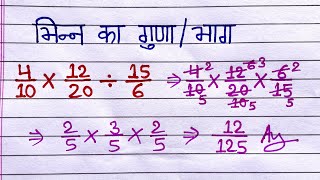 भिन्न का गुणा/भाग
4/10 × 12/20 ÷ 15/6 ⇒ 4̶ 2/1̶0̶ 5 × 1̶2̶ 6̶ 3/2̶0̶ 1̶0̶ 5 × 6̶ 2/1̶5̶ 5
⇒ 2/5 × 3/5 × 2/5 ⇒ 12/125 Ay